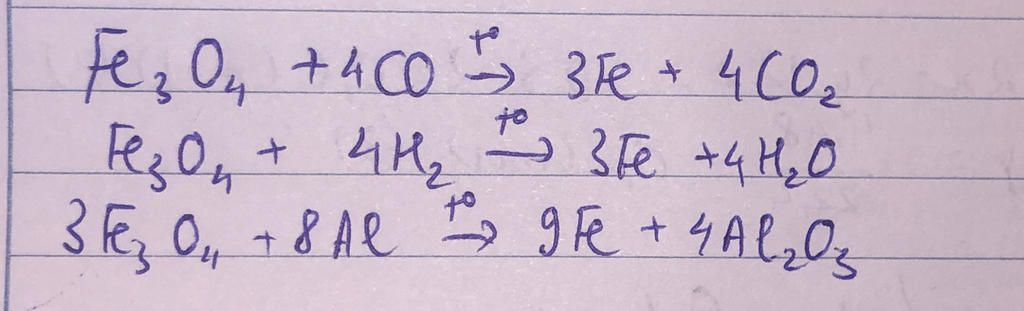 Fe₃O₄ + 4CO →(t°) 3Fe + 4CO₂
Fe₃O₄ + 4H₂ →(t°) 3Fe + 4H₂O
3Fe₃O₄ + 8Al →(t°) 9Fe + 4Al₂O₃